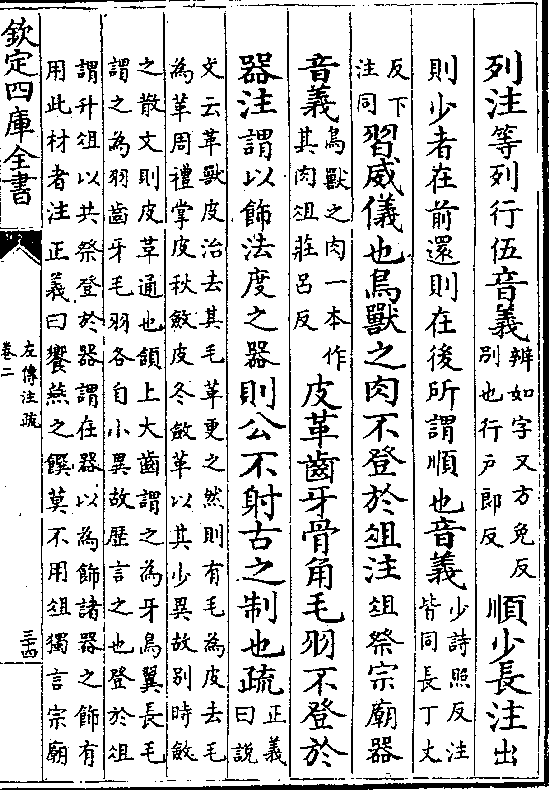 列注等列行伍音義辨如字又方免反別也行戶郎反順少長注出
則少者在前還則在後所謂順也音義少詩照反注皆同長丁丈
反下注同習威儀也鳥獸之肉不登於俎注俎祭宗廟器
音義鳥獸之肉一本作其肉俎莊呂反皮革齒牙骨角毛羽不登於
器注謂以飾法度之器則公不射古之制也疏正義曰說
文云革獸皮治去其毛革更之然則有毛為皮去毛
為革周禮掌皮秋斂皮冬斂革以其少異故別時斂
之散文則皮革通也頷上大齒謂之為牙鳥翼長毛
謂之為羽齒牙毛羽各自小異故歷言之也登於俎
謂升俎以共祭登於器謂在器以為飾諸器之飾有
用此材者注正義曰饗燕之饌莫不用俎獨言宗廟
欽定四庫全書
左傳注疏
卷二
三十四